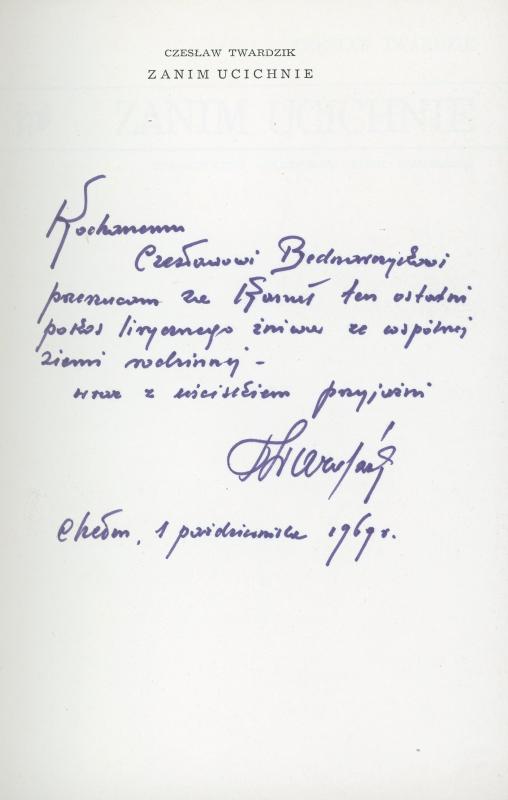 CZESŁAW TWARDZIK
ZANIM UCICHNIE
Kochanemu
Czesławowi Bednarczykowi
przerzucam za Kanał ten ostatni
pokos lirycznego żniwa ze wspólnej
ziemi rodzinnej –
wraz z uściskiem przyjaźni
Chełm, 1 października 1969 r.